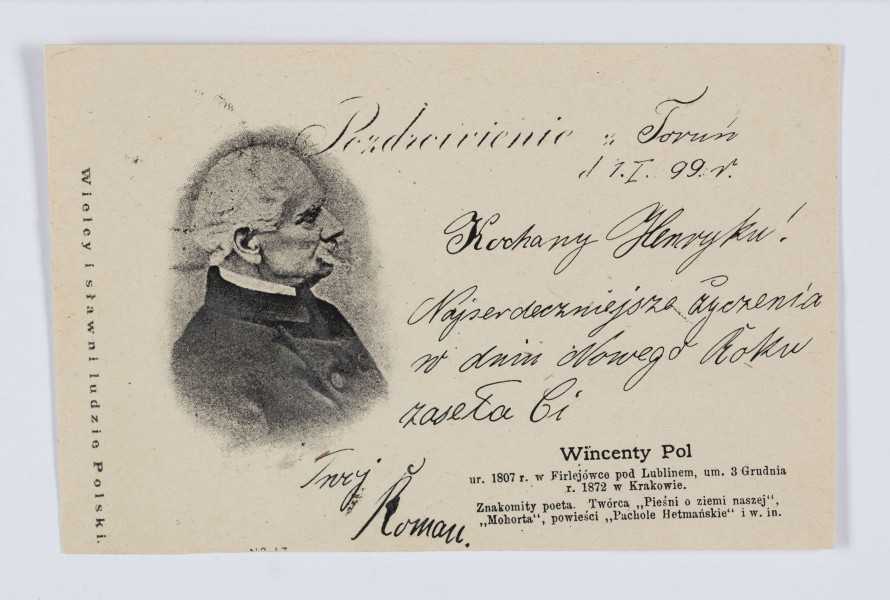 Wielcy i sławni ludzie Polski.
Pozdrowienie z Toruń
d 1. I. 99. r.
Kochany Henryku!
Najserdeczniejsze życzenia
w dniu Nowego Roku
zaseła Ci
Twój
Roman.
Wincenty Pol
ur. 1807 r. w Firlejówce pod Lublinem, um. 3 Grudnia
r. 1872 w Krakowie.
Znakomity poeta. Twórca „Pieśni o ziemi naszej“,
„Mohorta“, powieści „Pachole Hetmańskie“ i w. in.